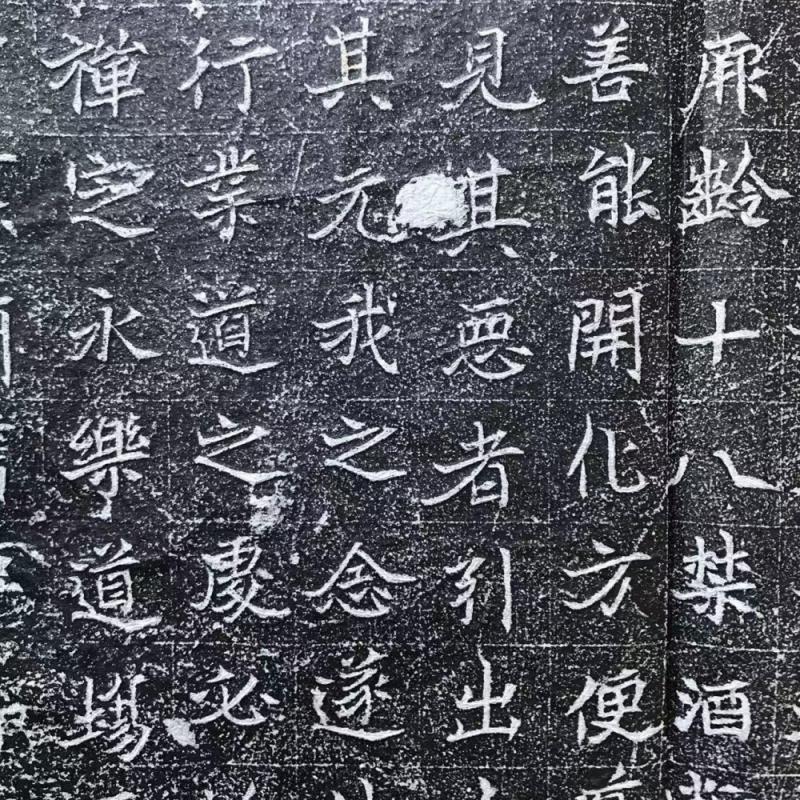 齡十八禁酒
善能開化方便
見其惡者引出
其元我之念遂
行業道之處必
禪定永樂道場